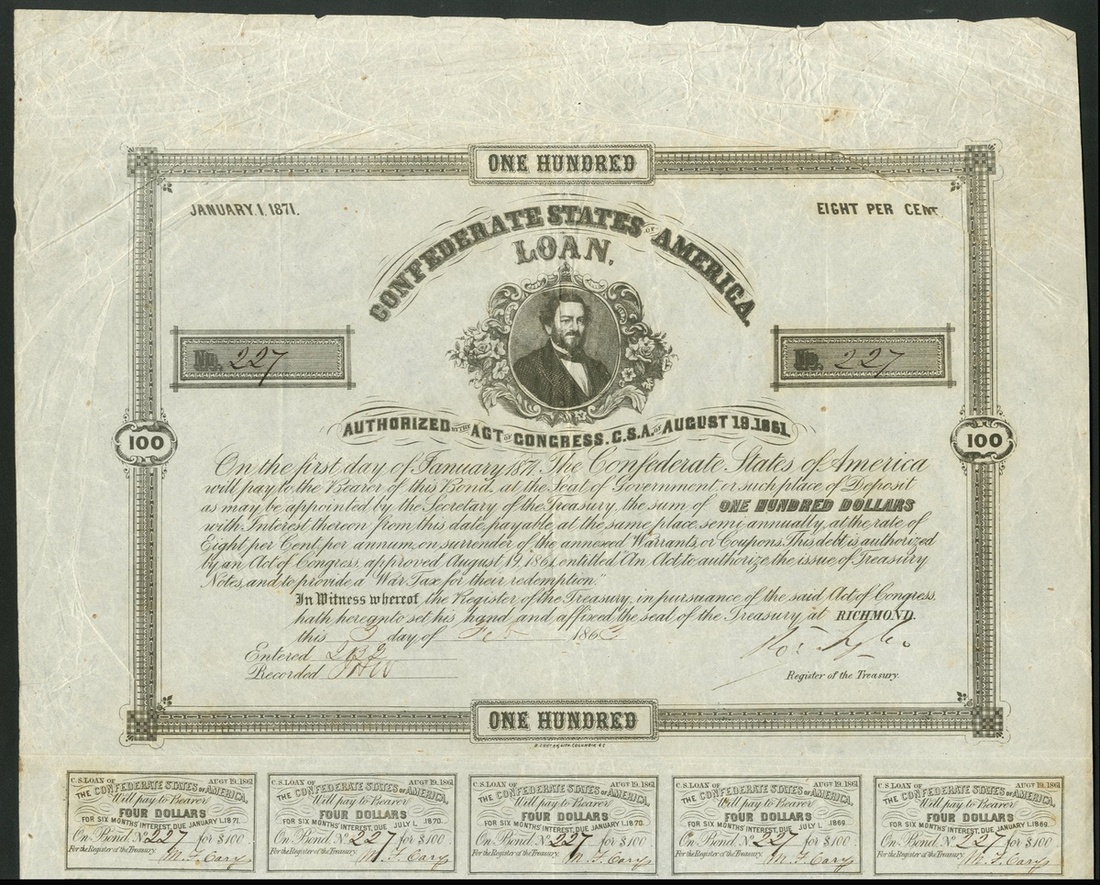 ONE HUNDRED
JANUARY.1.1871.
EIGHT PER CENT
CONFEDERATE STATES OF AMERICA.
LOAN.
No. 227
No. 227
AUTHORIZED BY THE ACT OF CONGRESS. C.S.A. OF AUGUST 19.1861.
100
100
On the first day of January 1871, The Confederate States of America
will pay to the Bearer of this Bond, at the Seat of Government or such place of Deposit
as may be appointed by the Secretary of the Treasury, the sum of ONE HUNDRED DOLLARS
with Interest thereon from this date, payable, at the same place, semi-annually, at the rate of
Eight per Cent. per annum, on surrender of the annexed Warrants, or Coupons. This debt is authorized
by an Act of Congress, approved August 19, 1861, entitled "An Act, to authorize the issue of Treasury
Notes, and to provide a War Tax for their redemption."
In Witness whereof the Register of the Treasury, in pursuance of the said Act of Congress,
hath hereunto set his hand and affixed the seal of the Treasury, at RICHMOND.
this 3 day of Feb 1863
Entered
Recorded
Register of the Treasury.
ONE HUNDRED
C.S. LOAN OF AUGT 19, 1861
THE CONFEDERATE STATES OF AMERICA,
Will pay to Bearer
FOUR DOLLARS
FOR SIX MONTHS INTEREST, DUE JANUARY 1, 1871.
On Bond, No 227 for $100
For the Register of the Treasury.
M. F. Cary
C.S. LOAN OF AUGT 19, 1861
THE CONFEDERATE STATES OF AMERICA,
Will pay to Bearer
FOUR DOLLARS
FOR SIX MONTHS INTEREST, DUE JULY 1, 1870.
On Bond, No 227 for $100
For the Register of the Treasury.
M. F. Cary
C.S. LOAN OF AUGT 19, 1861
THE CONFEDERATE STATES OF AMERICA,
Will pay to Bearer
FOUR DOLLARS
FOR SIX MONTHS INTEREST, DUE JANUARY 1, 1870.
On Bond, No 227 for $100
For the Register of the Treasury.
M. F. Cary
C.S. LOAN OF AUGT 19, 1861
THE CONFEDERATE STATES OF AMERICA,
Will pay to Bearer
FOUR DOLLARS
FOR SIX MONTHS INTEREST, DUE JULY 1, 1869.
On Bond, No 227 for $100
For the Register of the Treasury.
M. F. Cary
C.S. LOAN OF AUGT 19, 1861
THE CONFEDERATE STATES OF AMERICA,
Will pay to Bearer
FOUR DOLLARS
FOR SIX MONTHS INTEREST, DUE JANUARY 1, 1869.
On Bond, No 227 for $100
For the Register of the Treasury.
M. F. Cary